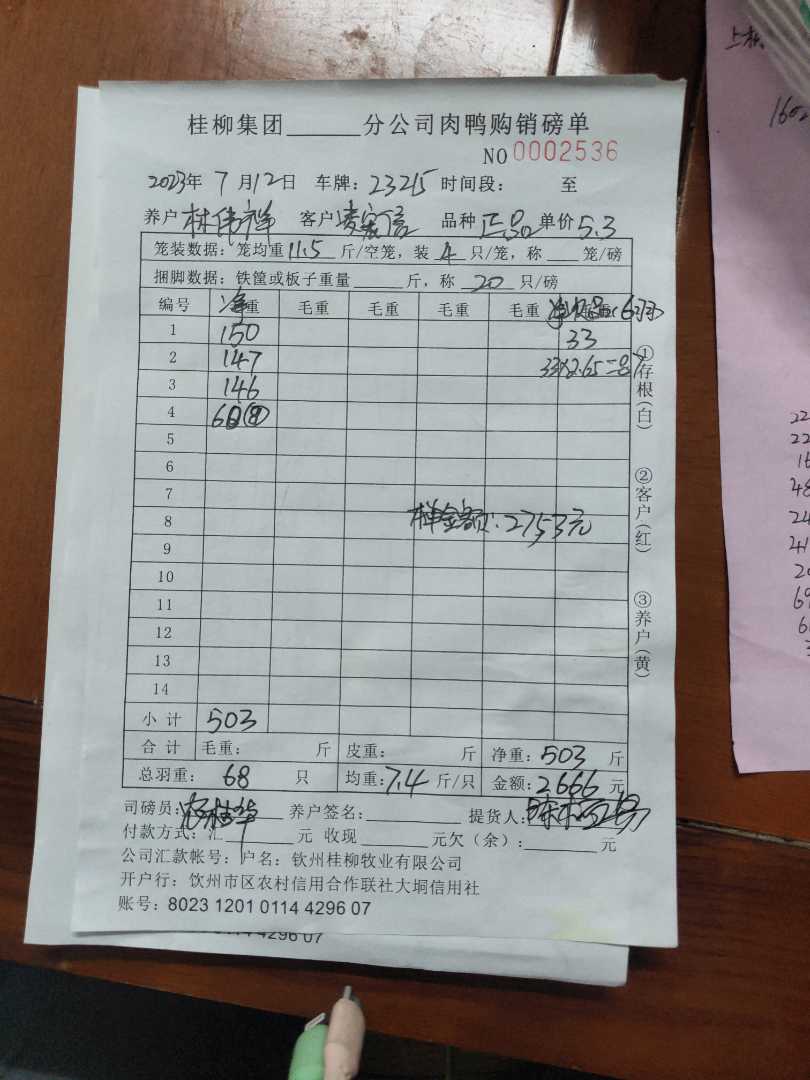 桂柳集团______分公司肉鸭购销磅单
NO 0002536
2023年 7月12日 车牌：23215 时间段： 至
养户 林伟祥 客户 品种 正品 单价 5.3
笼装数据：笼均重 11.5 斤/空笼，装 4 只/笼，称 笼/磅
捆脚数据：铁筐或板子重量 斤，称 20 只/磅
编号 净重 毛重 毛重 毛重 毛重
1 150 33
2 147 33×2.65=87
3 146
4 60⑧
5
6
7
8 金额：2753元
9
10
11
12
13
14
小计 503
合计 毛重： 斤 皮重： 斤 净重：503 斤
总羽重： 68 只 均重：7.4 斤/只 金额：2666 元
司磅员：杨桂华 养户签名： 提货人：
付款方式：汇 元 收现 元欠（余）： 元
公司汇款帐号：户名：钦州桂柳牧业有限公司
开户行：钦州市区农村信用合作联社大垌信用社
账号：8023 1201 0114 4296 07
①存根(白)
②客户(红)
③养户(黄)
4296 07
160
22
22
16
48
24
41
20
69
6